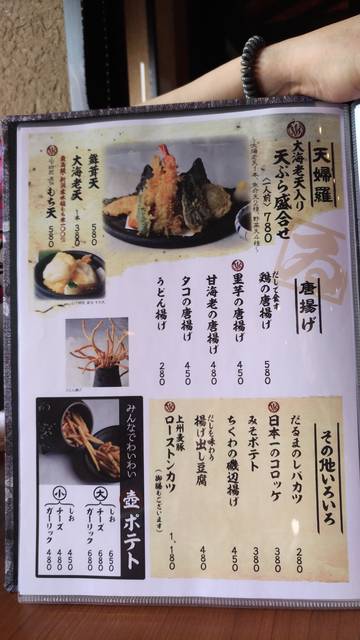 天婦羅
大海老天入り
天ぷら盛合せ
(一人前) 780
舞茸天 580
大海老天 1本 380
もち天 580
唐揚げ
だしで食す
鶏の唐揚げ 580
里芋の唐揚げ 450
甘海老の唐揚げ 480
タコの唐揚げ 450
うどん揚げ 280
その他いろいろ
だるまのレバカツ 280
日本一のコロッケ 380
みそポテト 380
ちくわの磯辺揚げ 450
だしを味わう
揚げ出し豆腐 480
上州麦豚
ローストンカツ 1,180
(御膳もございます)
みんなでわいわい
壺ポテト
大
しお 650
チーズ 680
ガーリック 680
小
しお 450
チーズ 480
ガーリック 480